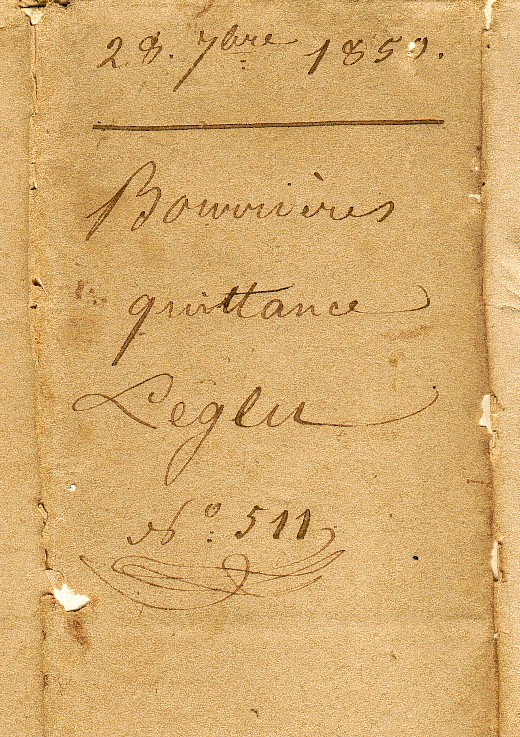 28. 7bre 1850.
Bourrières
quittance
Leglu
No. 511